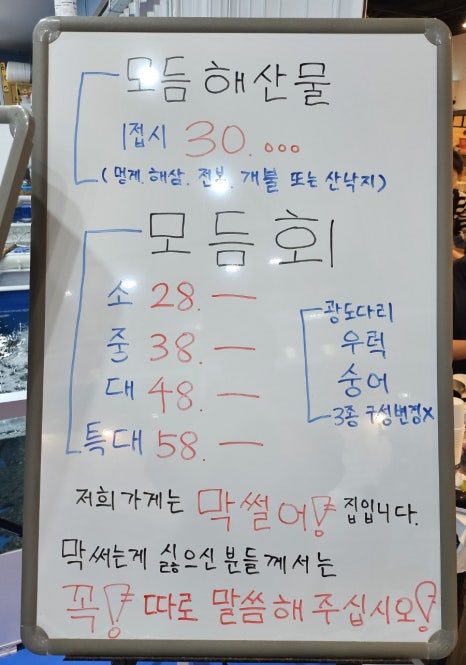 모듬해산물
1접시 30.000
(멍게. 해삼. 전복. 개불 또는 산낙지)
모듬회
소 28.—
줄 38.—
대 48.—
특대 58.—
광도다리
우럭
숭어
3종 구성변경X
저희 가게는 막썰어! 집입니다.
막써는게 싫으신 분들께서는
꼭! 따로 말씀해 주십시오!